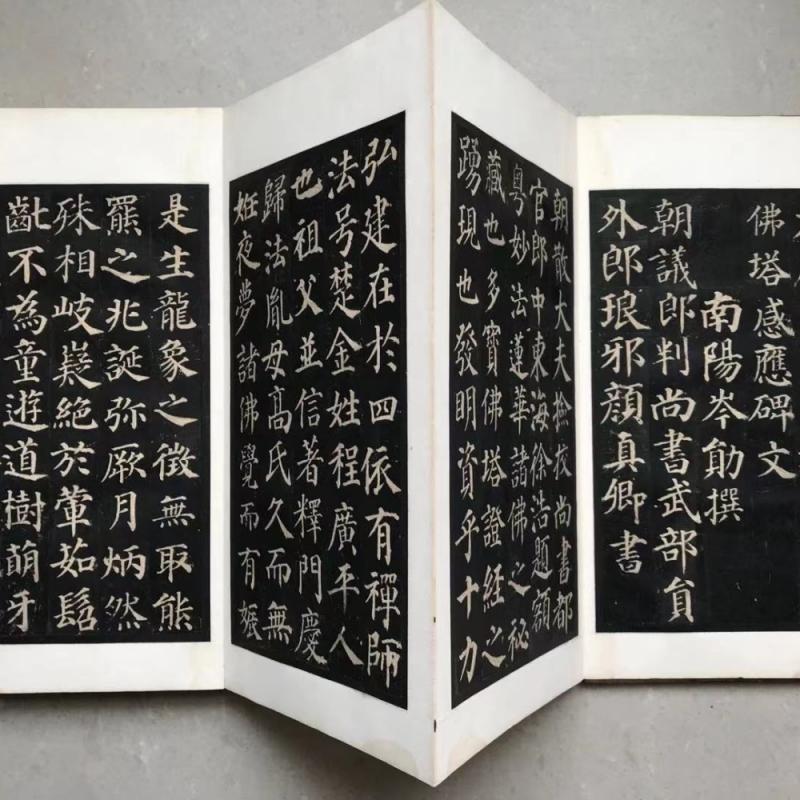 佛塔感應碑文
南陽岑勛撰
朝議郎判尚書武部員
外郎琅邪顏真卿書
朝散大夫撿挍尚書都
官郎中東海徐浩題額
粵妙法蓮華諸佛之秘
藏也多寶佛塔證經之
踴現也發明資乎十力
弘建在於四依有禪師
法号楚金姓程廣平人
也祖父並信著釋門慶
歸法胤母高氏久而無
妊夜夢諸佛覺而有娠
是生龍象之徵無取熊
羆之兆誕弥厥月炳然
殊相岐嶷絕於葷茹髫
齓不為童遊道樹萌牙